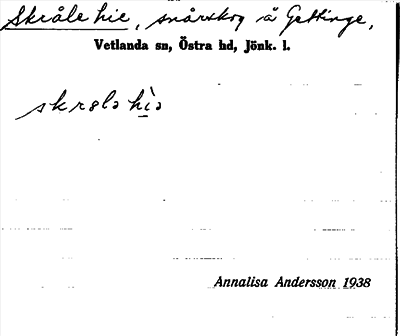 Skråle hie, snårskog å Gettinge,
Vetlanda sn, Östra hd, Jönk. l.
skrålə hìə
Annalisa Andersson 1938